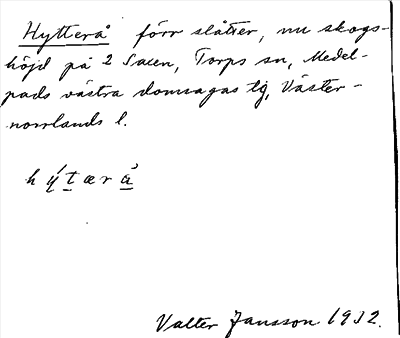 Hytterå förr slåtter, nu skogs-
höjd på 2 Saxen, Torps sn, Medel-
pads västra domsagas tg, Väster-
norrlands l.
hýtærå̀
Valter Jansson 1932.